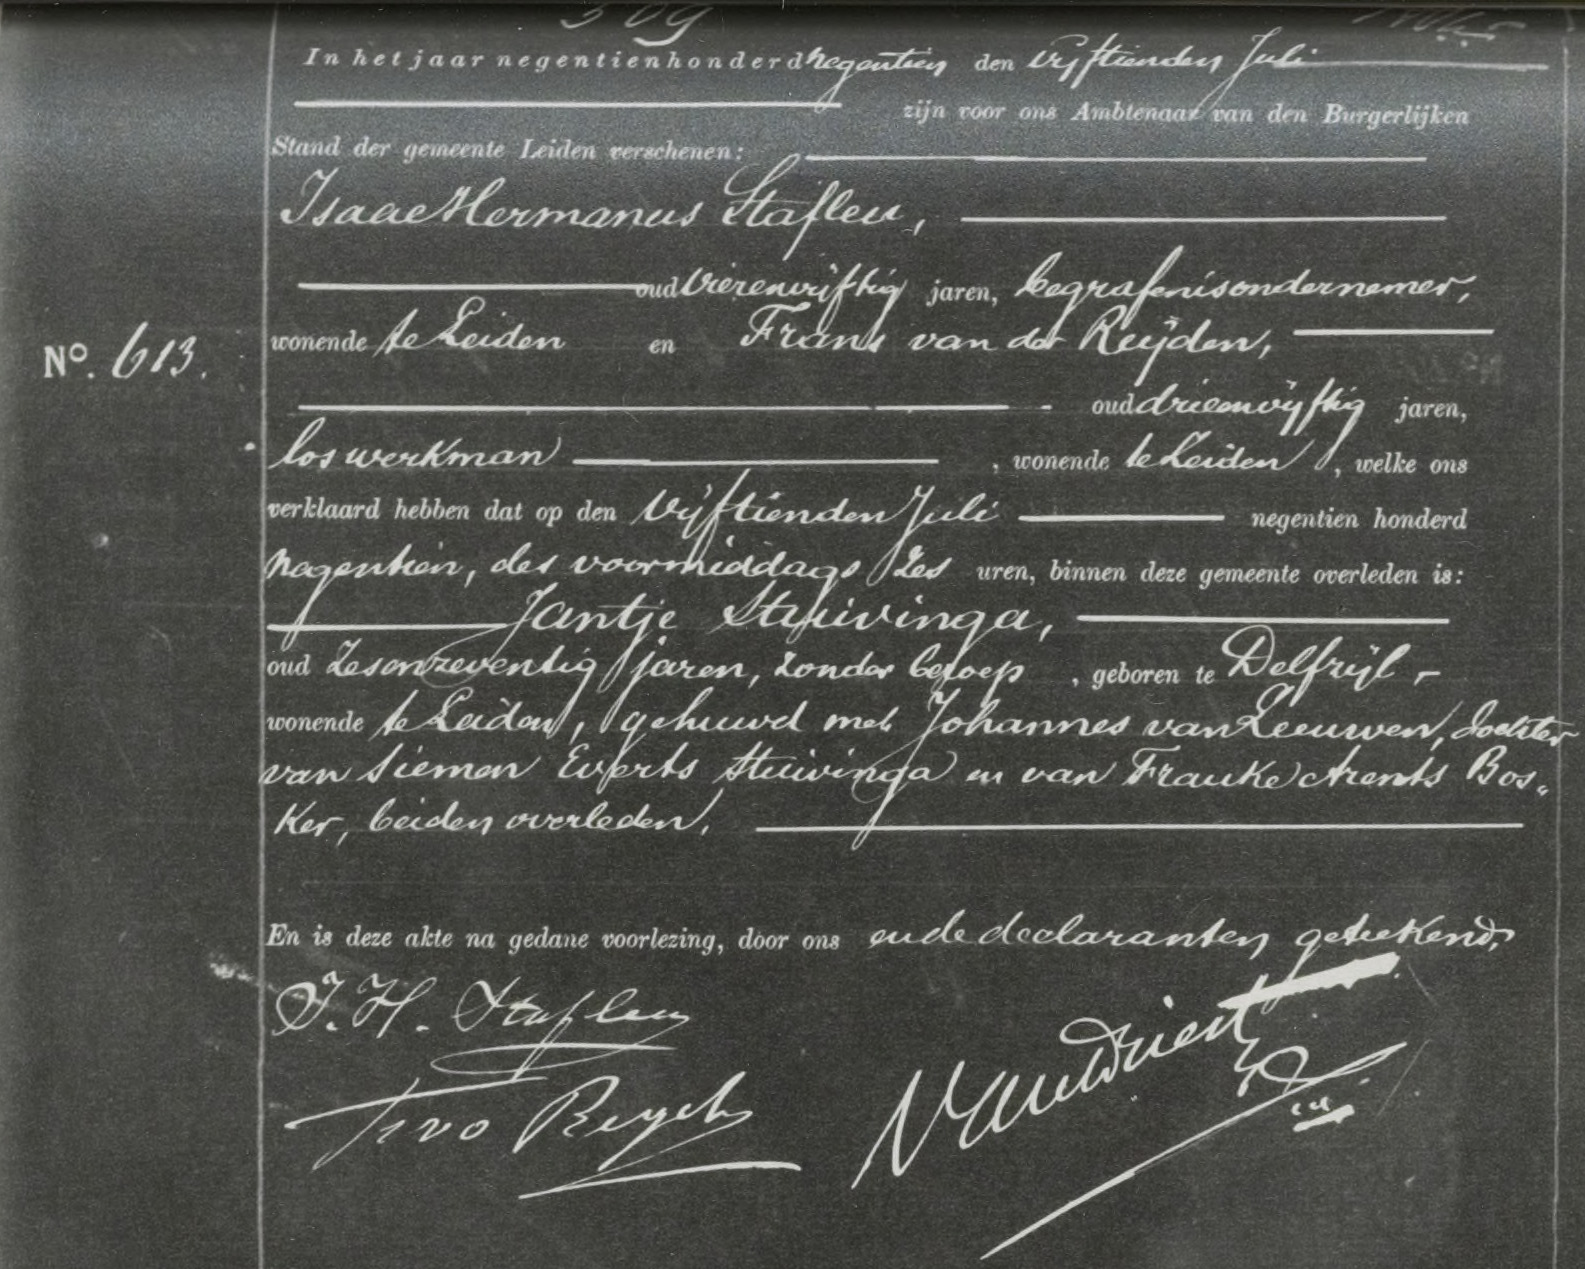 509
In het jaar negentienhonderd negentien den vijftienden Juli
zijn voor ons Ambtenaar van den Burgerlijken
Stand der gemeente Leiden verschenen:
Isaac Hermanus Stafleu,
oud vierenvijftig jaren, begrafenisondernemer,
wonende te Leiden en Frans van der Reijden,
No. 613.
oud drieenvijftig jaren,
los werkman , wonende te Leiden , welke ons
verklaard hebben dat op den vijftienden Juli negentien honderd
negentien, des voormiddags zes uren, binnen deze gemeente overleden is:
Jantje Stuivinga,
oud zesenzeventig jaren, zonder beroep , geboren te Delfzijl -
wonende te Leiden, gehuwd met Johannes van Leeuwen, dochter
van Siemen Everts Stuivinga en van Frauke Arents Bos„
ker, beiden overleden.
En is deze akte na gedane voorlezing, door ons en de declaranten geteekend.
I. H. Stafleu